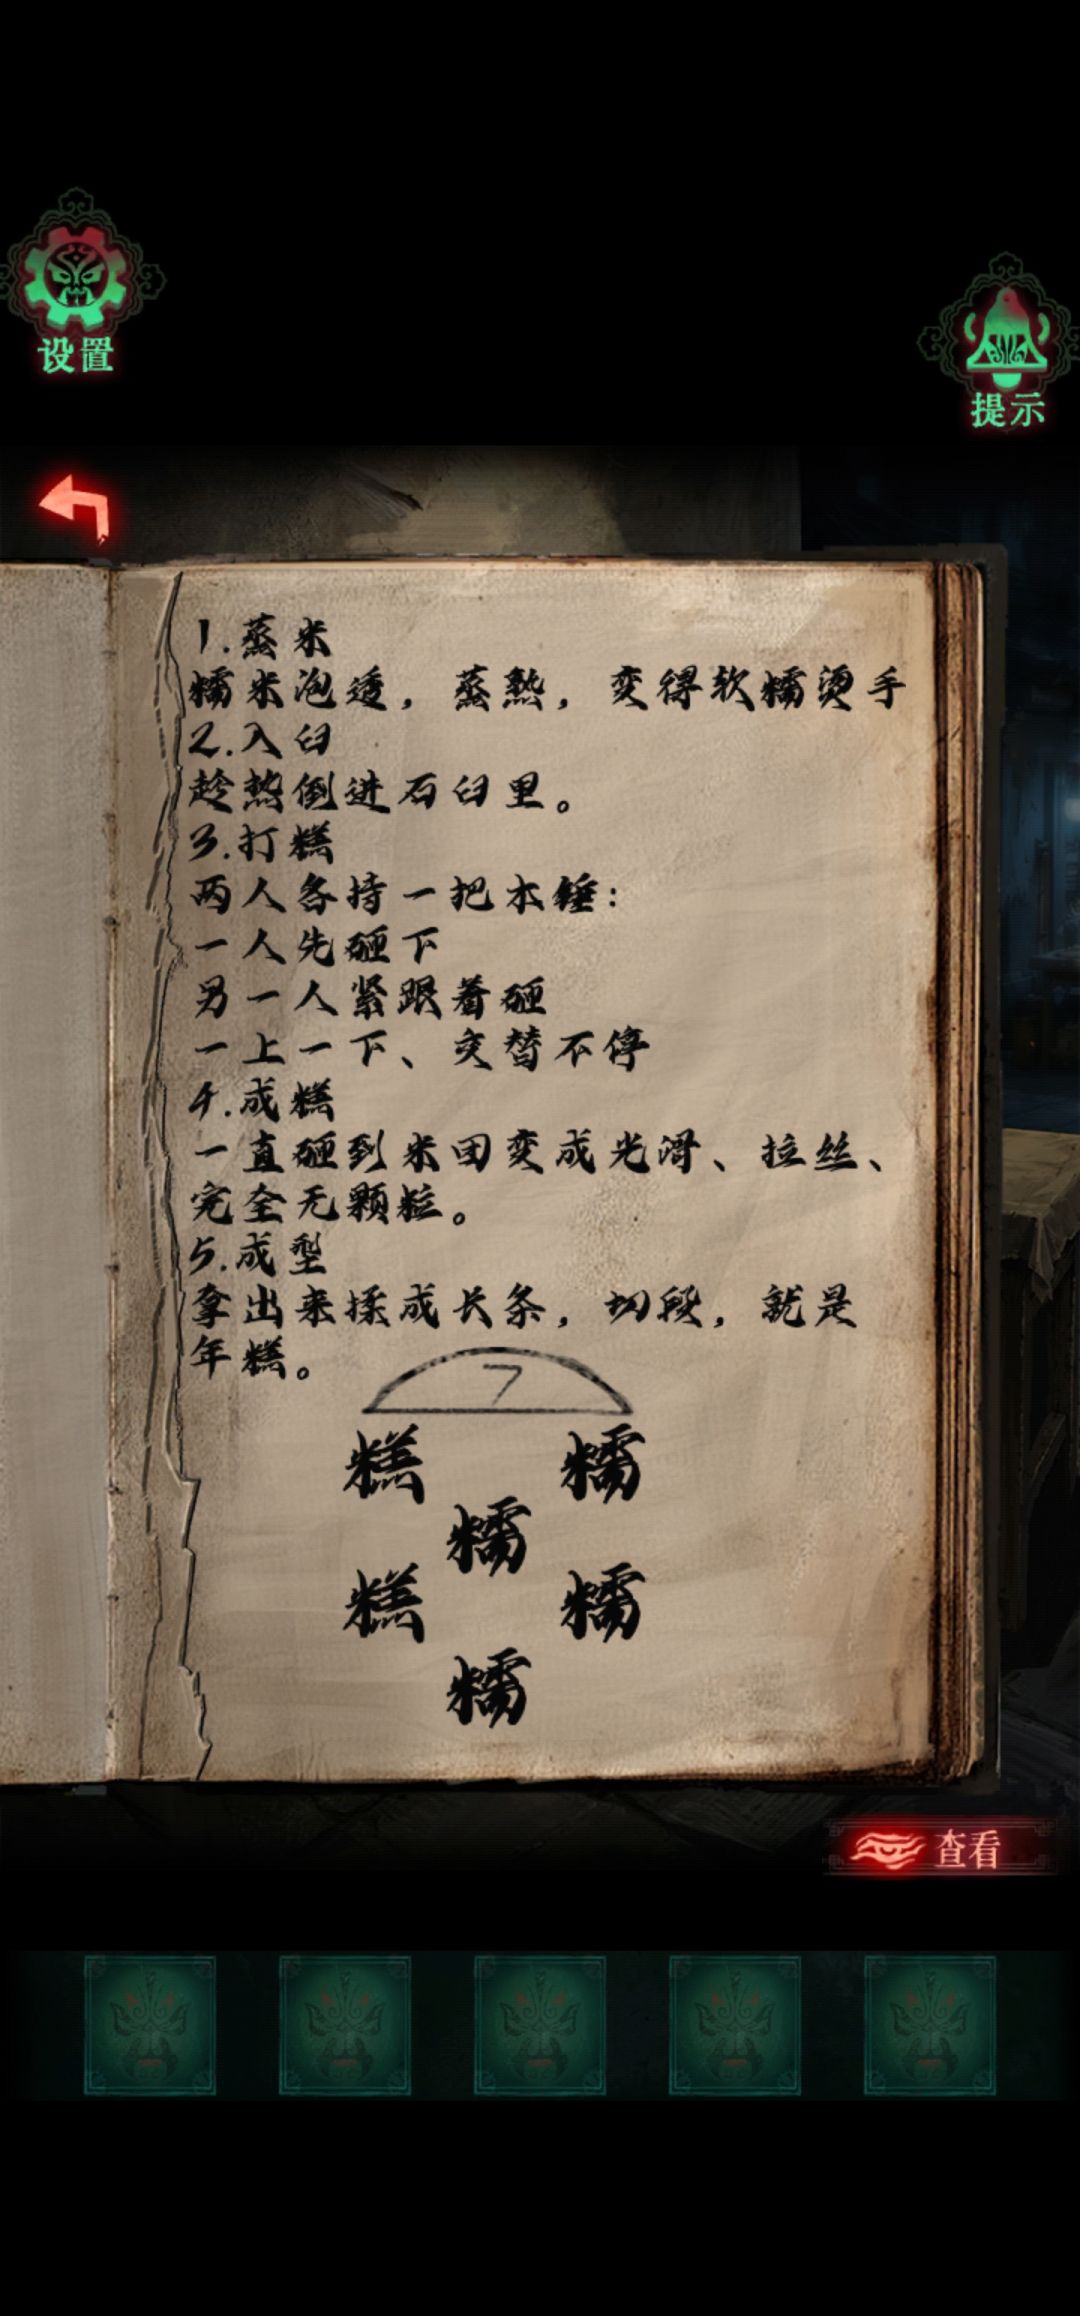 设置
提示
1.蒸米
糯米泡透，蒸熟，变得软糯烫手
2.入臼
趁热倒进石臼里。
3.打糕
两人各持一把木锤：
一人先砸下
另一人紧跟着砸
一上一下、交替不停
4.成糕
一直砸到米团变成光滑、拉丝、
完全无颗粒。
5.成型
拿出来揉成长条，切段，就是
年糕。
7
糕 糯
糯
糕 糯
糯
查看